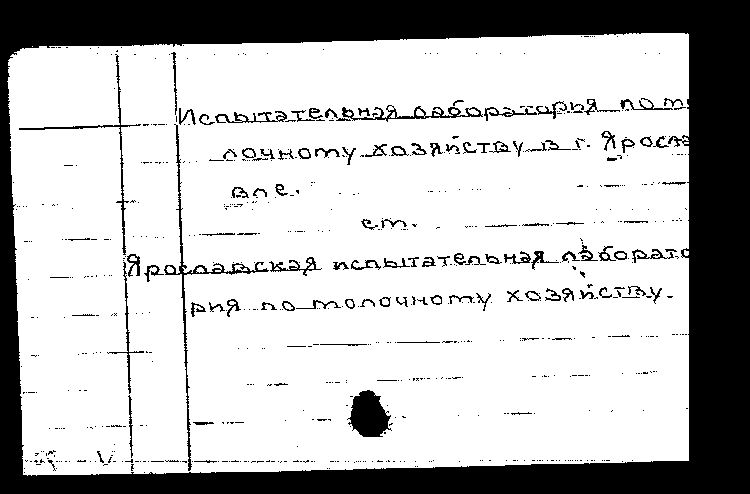 Испытательная лаборатория по мо
лочному хозяйству в г. Яросла
вле.
см.
Ярославская испытательная лаборато
рия по молочному хозяйству.